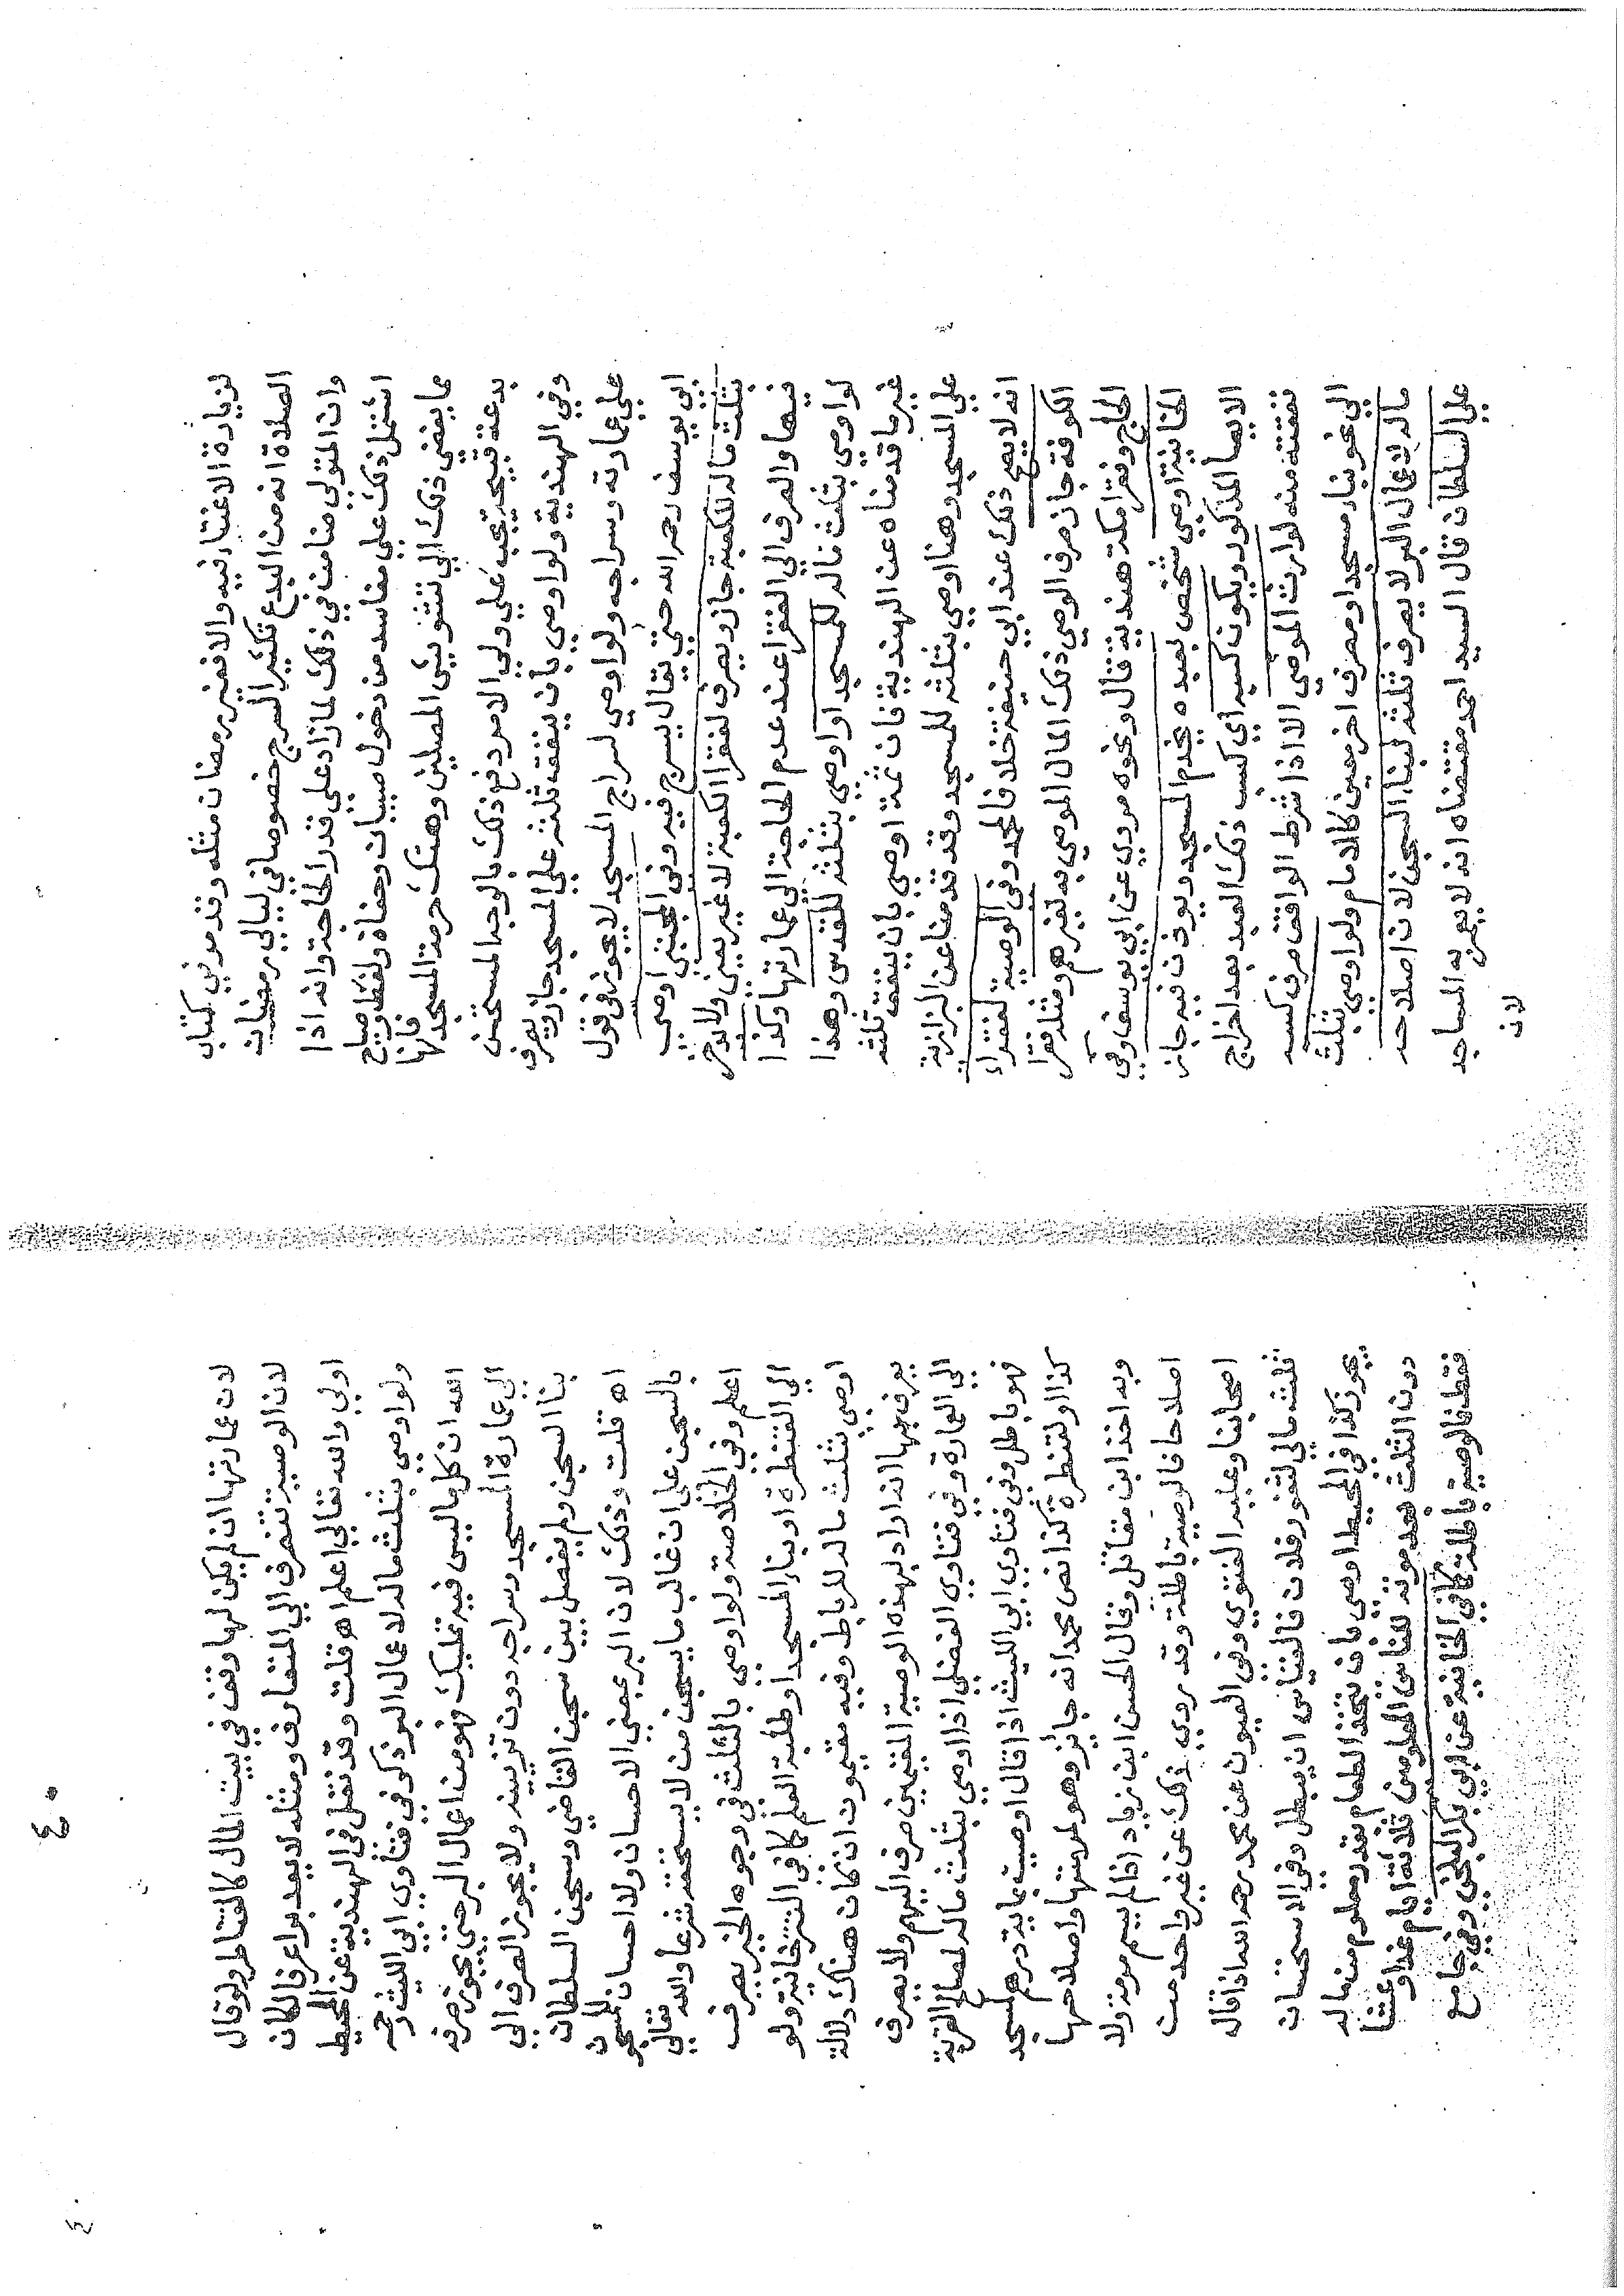 لزيارة الاغتناء فيه والافغير رمضان مثله وقد مر في كتاب
الصلاة انه من البدع تكثير السرج خصوصا في ليالي رمضان
وان المتولي ضامن في ذلك لما زاد على قدر الحاجة وانه اذا
اشتمل ذلك علي مفاسد من دخول صبيان وحفاة ولغط وصياح
مما يفضي ذلك الي تشويش المصلين وهتك حرمة المسجد فانها
بدعة قبيحة يجب علي ولي الامر دفع ذلك بالوجه المستحسن
وفي الهندية ولو اوصي بان ينفق ثلثه علي المسجد جاز ويصرف
علي عمارته وسراجه ولو اوصي لسراج المسجد لا يجوز في قول
ابي يوسف رحمه الله حتي يقال يسرج فيه وفي المجتبي اوصي
بثلث ماله للكعبة جاز ويصرف لفقرا الكعبة لا غير يعني ولا يدخر
فيها والصرف الي الفقرا عند عدم الحاجة الي عمارتها وكذا
لو اوصي بثلث ماله للمسجد او اوصي بثلثه للقدس وهذا
غير ما قدمناه عن الهندية فان ثمة اوصي بان ينفق ثلثه
علي المسجد وهنا اوصي بثلثه للمسجد وقد قدمنا عن البزازية
انه لا يصح ذلك عند ابي حنيفة خلافا لمحمد وفي الوصية لفقراء
الكوفة جاز صرف الوصي ذلك المال الموصي به لغيرهم ومثله فقرا
الحاج وفقرا مكة هندية قال ونحوه مروي عن ابي يوسف وفي
الخانية اوصي شخص بعبده يخدم المسجد ويوذن فيه جاز
الايصا المذكور ويكون كسبه اي كسب ذلك العبد بعد اخراج
نفقته منه لوارث الموصي الا اذا شرط الواقف صرف كسبه
الي نحو بناء مسجد او مصرف اخر معين كالامام ولو اوصي بثلث
ماله لاعمال البر لا يصرف ثلثه لبناء السجن لان اصلاحه
علي السلطان قال السيد احمد مقتضاه انه لا يعمر به المساجد
لان
٤٠
لان عمارتها ان لم يكن لها وقف في بيت المال كالقناطر ولو قال
لان الوصية تنصرف الي المتعارف ومثله لا يعد برا عرفا لكان
اولي والله تعالي اعلم اهـ قلت وقد نقل في الهندية عن المحيط
ولو اوصي بثلث ماله لاعمال البر ذكر في فتاوي ابي الليث رحمه
الله ان كل ما ليس فيه تمليك فهو من اعمال البر حتي يجوز صرفه
الي عمارة المسجد وسراجه دون تزيينه ولا يجوز الصرف الي
بناء السجن ولم يفصل بين سجن القاضي وسجن السلطان
اهـ قلت وذلك لان البر بمعني الاحسان ولا احسان للمسجون
بالسجن علي ان غالب ما يسجن من لا يستحقه شرعا والله تعالي
اعلم وفي الخلاصة ولو اوصي بالثلث في وجوه الخير يصرف
الي القنطرة او بناء المسجد او طلبة العلم كما في التترخانية ولو
اوصي بثلث ماله للرباط وفيه مقيمون ان كان هناك دلالة
يعرف بها انه اراد بهذه الوصية المقيمين صرف اليهم ولا يصرف
الي العمارة وفي فتاوي الفضلي اذا اوصي بثلث ماله لمصالح القرية
فهو باطل وفي فتاوي ابي الليث اذا قال اوصيت بماية درهم لمسجد
كذا او لقنطرة كذا نص محمد انه جائز وهو لمرمتها واصلاحها
وبه اخذ ابن مقاتل وقال الحسن ابن زياد اذا لم يسم مرمة ولا
اصلاحا فالوصية باطلة وقد روي ذلك عن غير واحد من
اصحابنا وعليه الفتوي وفي العيون عن محمد رحمه الله اذا قال
ثلث مالي لثغور فلان فالقياس ان يبطل وفي الاستحسان
يجوز كذا في المحيط اوصي بان يتخذ الطعام بقدر معلوم من ماله
دون الثلث بعد موته للناس المعلومين ثلاثة ايام غدا وعشا
فقط فالوصية باطلة كما في الخانية عن ابي بكر البلخي وفي جامع